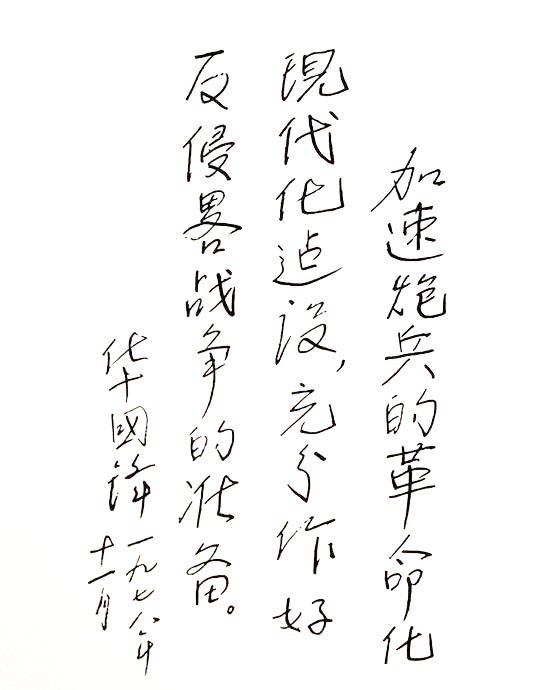 加速炮兵的革命化
現代化迠设，充分作好
反侵畧战争的准备。
华國锋 一九七八年
十一月